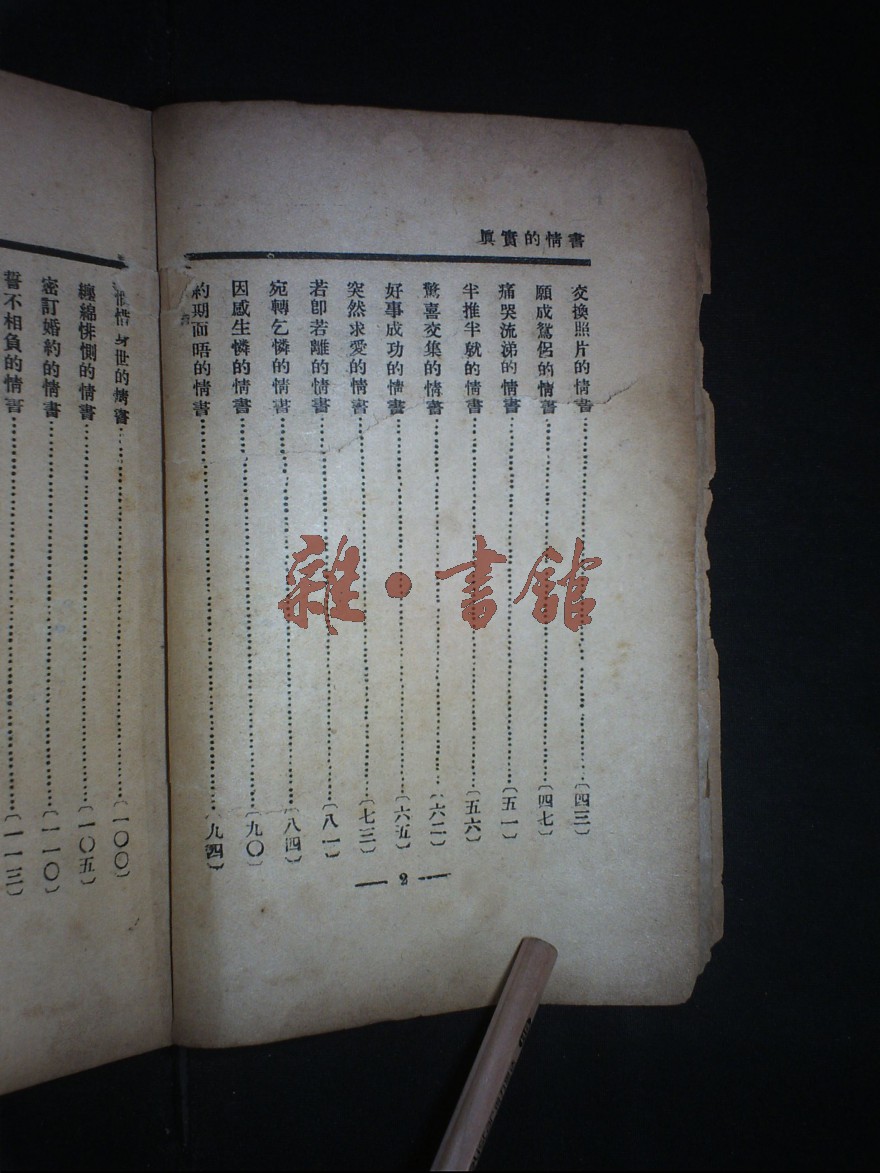 眞實的情書
交換照片的情書〔四三〕
願成鴛侶的情書〔四七〕
痛哭流涕的情書〔五一〕
半推半就的情書〔五六〕
驚喜交集的情書〔六二〕
好事成功的情書〔六五〕
突然求愛的情書〔七三〕
若卽若離的情書〔八一〕
宛轉乞憐的情書〔八四〕
因感生憐的情書〔九〇〕
約期面唔的情書〔九四〕
2
惜身世的情書〔一〇〇〕
纏綿悱惻的情書〔一〇五〕
密訂婚約的情書〔一一〇〕
誓不相負的情書〔一一三〕
雜·書館